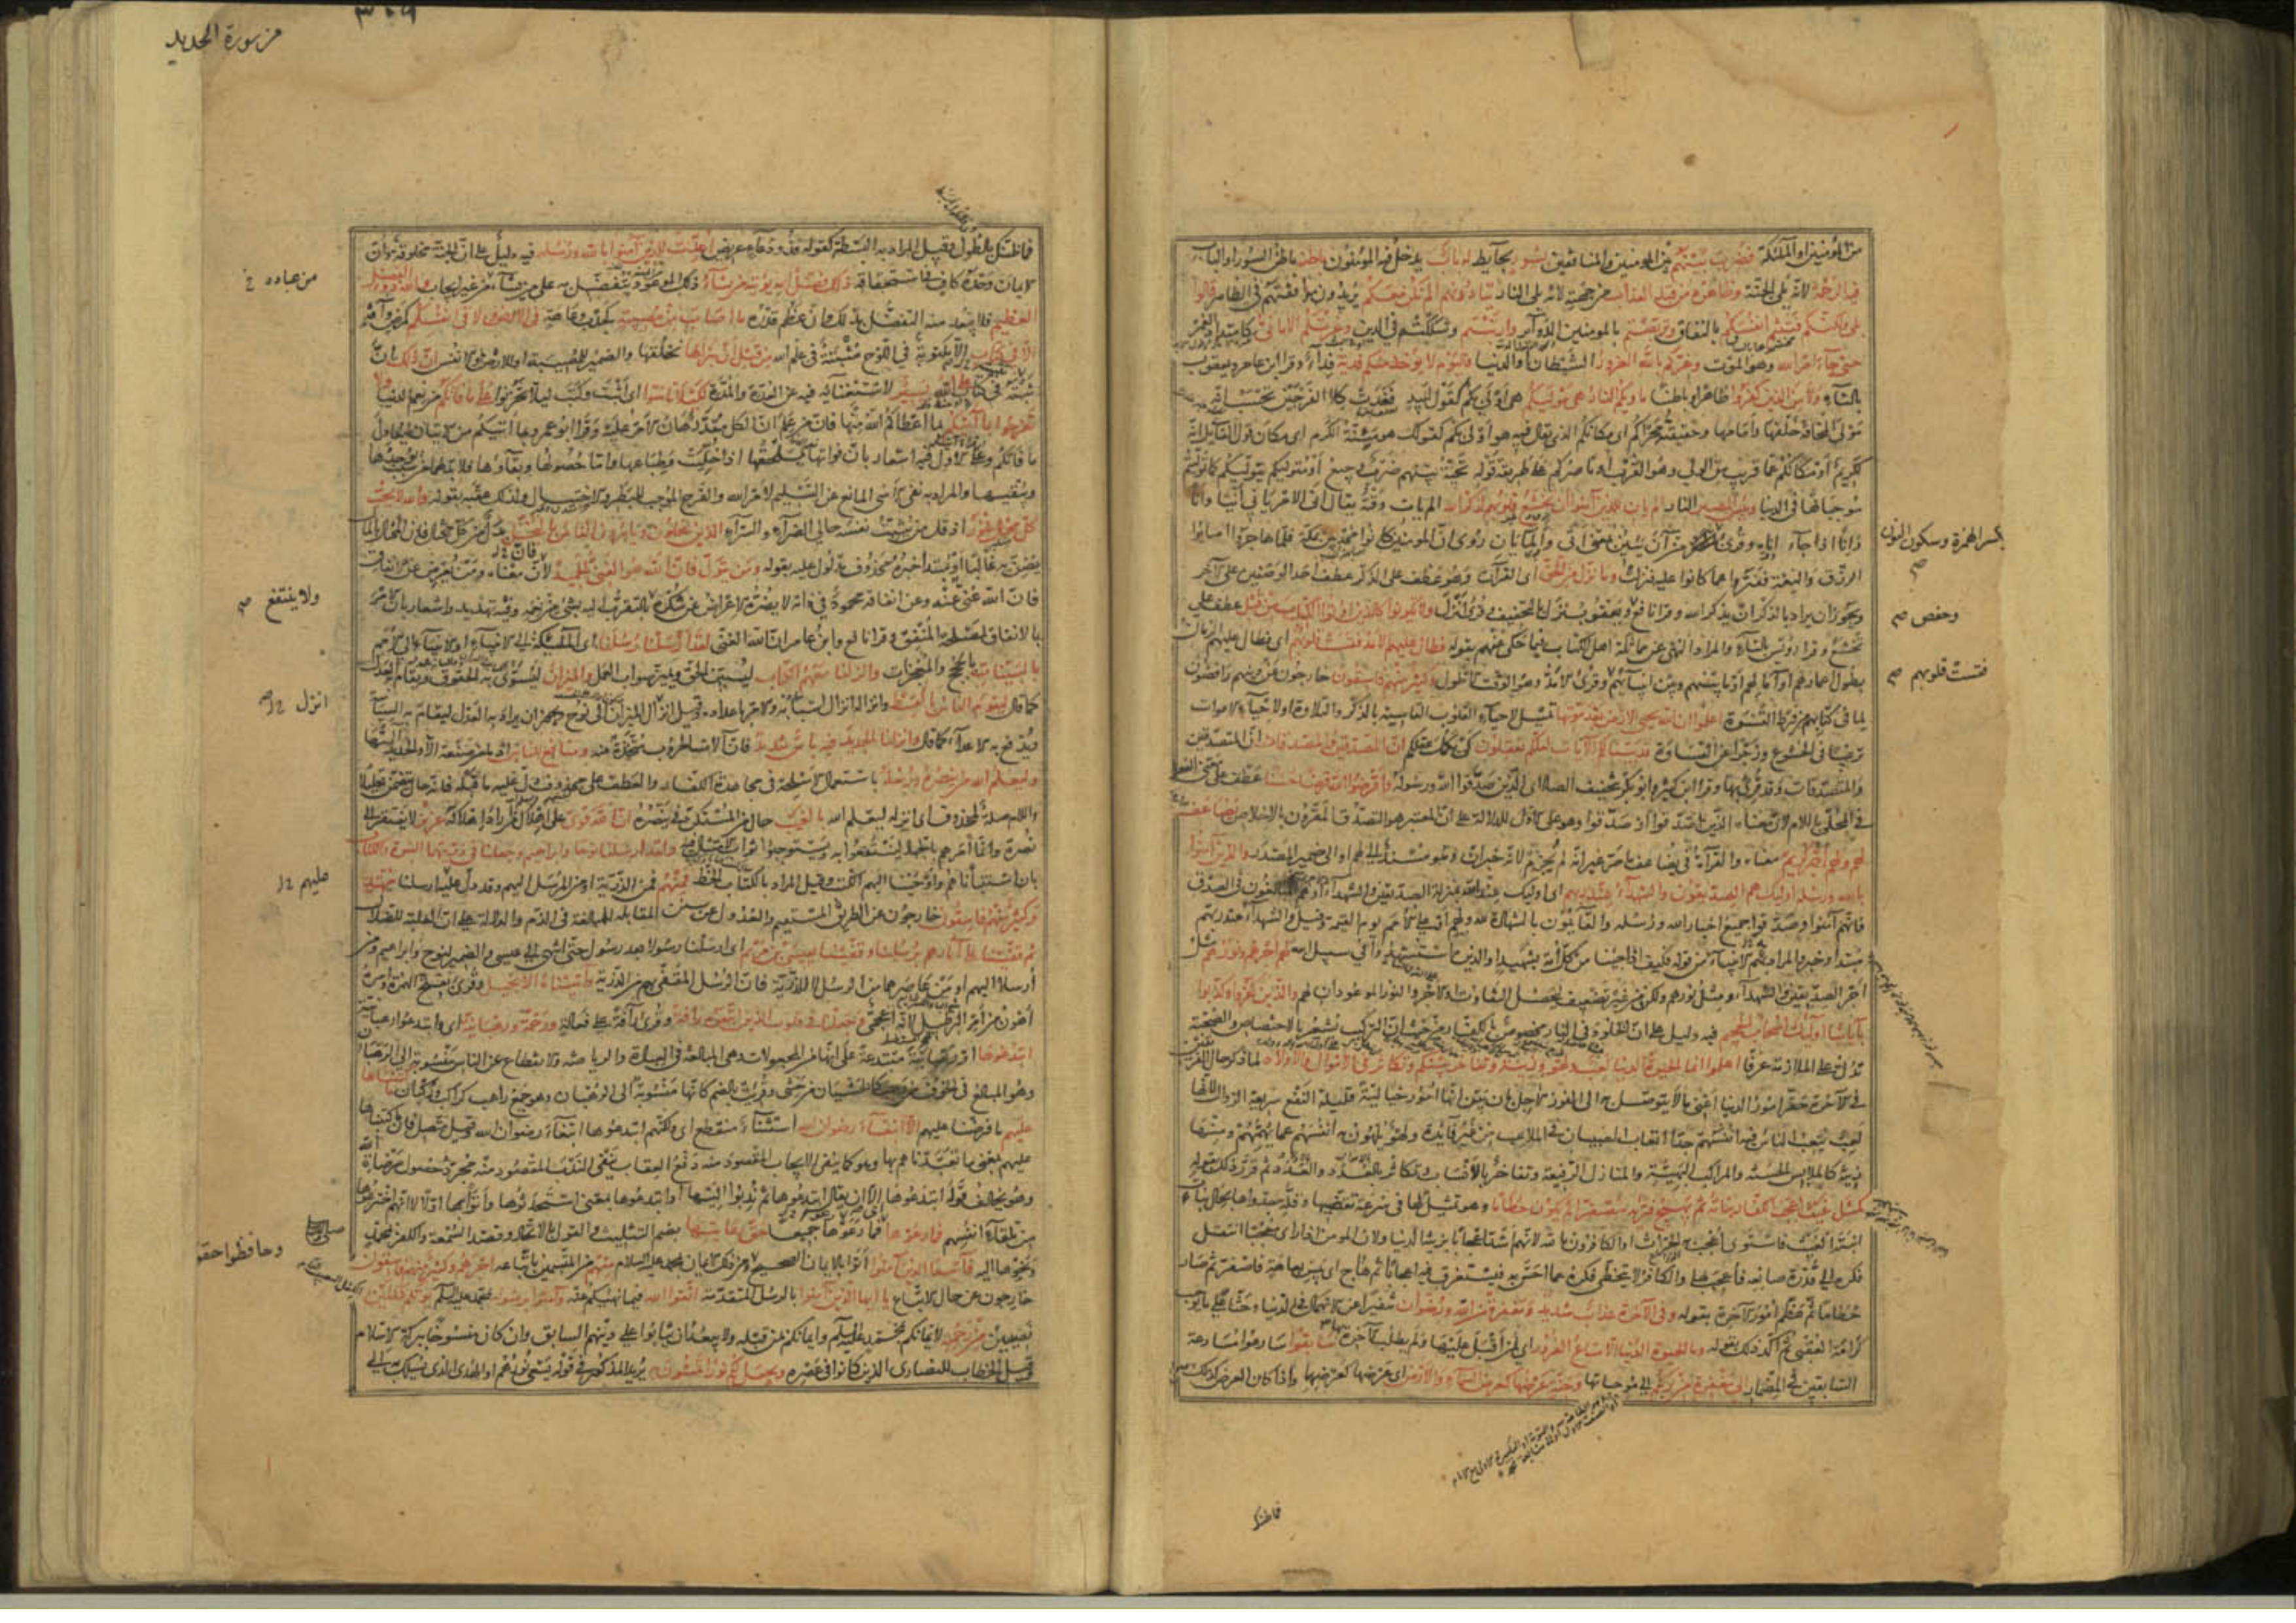 من المؤمنين او الملئكة فضرب بينهم بين المؤمنين والمنافقين بسور بحايط له باب يدخل فيه المؤمنون باطنه باطن السور او الباب
فيه الرحمة لانه يلى الجنة وظاهره من قبله العذاب من جهته لانه يلى النار ينادونهم الم نكن معكم يريدون موافقتهم فى الظاهر قالوا
بلى ولكنكم فتنتم انفسكم بالنفاق وتربصتم بالمومنين الدوآير وارتبتم وشككتم فى الدين وغرتكم الامانى كامتداد العمر
حتى جآء امر الله وهو الموت وغركم بالله الغرور الشيطان او الدنيا فاليوم لا يوخذ منكم فدية فدآء وقرا ابن عامر ويعقوب
بالتآء ولا من الذين كفروا ظاهرا وباطنا ماويكم النار هى موليكم هى اولى بكم كقول لبيد فغدت كلا الفرجين تحسب انه
مولى المخافة خلفها وامامها وحقيقته محراكم اى مكانكم الذى يقال فيه هو اولى بكم كقولك هو مئنة الكرم اى مكان قول القايل انه
لكريم او مكانكم عما قريب من الولى وهو القرب او ناصركم على طريقة قوله تحية بينهم ضرب وجيع او متوليكم يتوليكم كما توليتم
موجباتها فى الدنيا وبئس المصير النار الم يان للذين آمنوا ان تخشع قلوبهم لذكر الله الم يات وقته يقال انى الامر يانى انيا وانا
وانا اذا جآء اناه وقرى الم يئن من آن يئين بمعنى اتى والما يان روى ان المومنين كانوا مجدبين بمكة فلما هاجروا اصابوا
الرزق والنعمة ففتروا عما كانوا عليه فنزلت وما نزل من الحق اى القرآن وهو عطف على الذكر عطف احد الوصفين على الآخر
ويجوز ان يراد بالذكر ان يذكر الله وقرا نافع ويعقوب نزل بالتخفيف وقرى انزل ولا يكونوا كالذين اوتوا الكتاب من قبل عطف على
تخشع وقرا رويس بالتآء والمراد النهى عن مماثلة اهل الكتاب فيما حكى عنهم بقوله فطال عليهم الامد فقست قلوبهم اى فطال عليهم الزمان
بطول اعمارهم او آمالهم او ما بينهم وبين انبيآئهم وقرى الامد وهو الوقت الاطول وكثير منهم فاسقون خارجون عن دينهم رافضون
لما فى كتابهم من فرط القسوة اعلموا ان الله يحيى الارض بعد موتها تمثيل لاحيآء القلوب القاسية بالذكر والتلاوة او لاحيآء الاموات
ترغيبا فى الخشوع وزجرا عن القساوة قد بينا لكم الآيات لعلكم تعقلون كى تكمل عقلكم ان المصدقين والمصدقات ان المتصدقين
والمتصدقات وقد قرى بهما وقرا ابن كثير وابو بكر بتخفيف الصاد اى الذين صدقوا الله ورسوله واقرضوا الله قرضا حسنا عطف على معنى الفعل
فى المحلى باللام لان معناه الذين اصدقوا او صدقوا وهو على الاول للدلالة على ان المعتبر هو التصدق المقرون بالاخلاص يضاعف
لهم ولهم اجر كريم معناه والقرآءة فى يضاعف ما مر غير انه لم يجزم لانه خبر ان وهو مسند الى لهم او الى ضمير المصدر والذين آمنوا
بالله ورسله اوليك هم الصديقون والشهدآء عند ربهم اى اوليك عند الله بمنزلة الصديقين والشهدآء او هم المبالغون فى الصدق
فانهم آمنوا وصدقوا جميع اخبار الله ورسله والقايمون بالشهادة لله ولهم او على الامم يوم القيمة وقيل والشهدآء عند ربهم
مبتدا وخبر والمراد بهم الانبيآء من قوله فكيف اذا جئنا من كل امة بشهيد او الذين استشهدوا فى سبيل الله لهم اجرهم ونورهم مثل
اجر الصديقين والشهدآء ومثل نورهم ولكن من غير تضعيف ليحصل التفاوت او الاجر والنور الموعودان لهم والذين كفروا وكذبوا
بآياتنا اوليك اصحاب الجحيم فيه دليل على ان الخلود فى النار مخصوص بالكفار من حيث ان التركيب يشعر بالاختصاص والصحبة
تدل على الملازمة عرفا اعلموا انما الحيوة الدنيا لعب ولهو وزينة وتفاخر بينكم وتكاثر فى الاموال والاولاد لما ذكر حال الفريقين
فى الآخرة حقر امور الدنيا اعنى ما لا يتوصل به الى الفوز الآجل بان بين انها امور خيالية قليلة النفع سريعة الزوال لانها
لعب يتعب الناس فيه انفسهم جدا اتعاب الصبيان فى الملاعب من غير فآئدة ولهو يلهون به انفسهم عما يهمهم وزينة
كالملابس الحسنة والمراكب البهية والمنازل الرفيعة وتفاخر بالانساب وتكاثر بالعدد والعدد ثم قرر ذلك بقوله
كمثل غيث اعجب الكفار نباته ثم يهيج فتريه مصفرا ثم يكون حطاما وهو تمثيل لها فى سرعة تقضيها وقلة جدواها بحال نبات
انبته الغيث فاستوى اعجب به الحراث او الكافرون بالله لانهم اشد اعجابا بزينة الدنيا ولان المومن اذا راى معجبا انتقل
فكره الى قدرة صانعه فاعجب بها والكافر لا يتخطى فكره عما احس به فيستغرق فيه اعجابا ثم هاج اى يبس بعاهة فاصفر ثم صار
حطاما ثم عظم امور الآخرة بقوله وفى الآخرة عذاب شديد ومغفرة من الله ورضوان تنفيرا عن الانهماك فى الدنيا وحثا على ما يوجب
كرامة العقبى ثم اكد ذلك بقوله وما الحيوة الدنيا الا متاع الغرور اى لمن اقبل عليها ولم يطلب الآخرة بها سابقوا سارعوا مسارعة
السابقين فى المضمار الى مغفرة من ربكم الى موجباتها وجنة عرضها كعرض السمآء والارض اى عرضها كعرضهما واذا كان العرض كذلك
بكسر الهمزة وسكون النون
صح
وحفص صح
فقست قلوبهم صح
فما ظنك
من سورة الحديد
٣٠٩
فما ظنك بالطول وقيل المراد به البسطة كقوله فذو دعآء عريض اعدت للذين آمنوا بالله ورسله فيه دليل على ان الجنة مخلوقة وان
الايمان وحده كاف فى استحقاقها ذلك فضل الله يؤتيه من يشآء ذلك الموعود يتفضل به على من يشآء من غير ايجاب والله ذو الفضل
العظيم فلا يبعد منه التفضل بذلك وان عظم قدره ما اصاب من مصيبة كجدب وعاهة فى الارض ولا فى انفسكم كمرض وآفة
الا فى كتاب الا مكتوبة فى اللوح مثبتة فى علم الله من قبل ان نبراها نخلقها والضمير للمصيبة او للارض او للانفس ان ذلك ان
ثبته فى كتاب على الله يسير لاستغنآئه فيه عن العدة والمدة لكيلا تاسوا اى اثبت وكتب ليلا تحزنوا على ما فاتكم من نعيم الدنيا ولا
تفرحوا بما آتيكم بما اعطاكم الله منها فان من علم ان الكل مقدر هان الامر عليه وقرا ابو عمرو بما اتيكم من الاتيان ليعادل
ما فاتكم وعلى الاول فيه اشعار بان فواتها يلحقها اذا خليت وطباعها واما حصولها وبقاؤها فلا بد لهما من سبب يوجدها
ويبقيها والمراد به نفى الاسى المانع عن التسليم لامر الله والفرح الموجب للبطر والاختيال ولذلك عقبه بقوله والله لا يحب
كل مختال فخور اذ قل من يثبت نفسه حالى الضرآء والسرآء الذين يبخلون ويامرون الناس بالبخل بدل من كل مختال فان المختال بالمال
يضن به غالبا او مبتدا خبره محذوف مدلول عليه بقوله ومن يتول فان الله هو الغنى الحميد لان معناه ومن يعرض عن الانفاق
فان الله غنى عنه وعن انفاقه محمود فى ذاته لا يضره الاعراض عن شكره بالتقرب اليه بشى من نعمه وفيه تهديد واشعار بان الامر
بالانفاق لمصلحة المنفق وقرا نافع وابن عامر ان الله الغنى لقد ارسلنا رسلنا اى الملئكة الى الانبيآء او الانبيآء الى الامم
بالبينات بالحجج والمعجزات وانزلنا معهم الكتاب ليبين الحق ويميز صواب العمل والميزان ليسوى به الحقوق ويقام به العدل
كما قال ليقوم الناس بالقسط وانزاله انزال اسبابه والامر باعداده وقيل انزل الميزان الى نوح ويجوز ان يراد به العدل ليقام به السياسة
ويدفع به الاعدآء كما قال وانزلنا الحديد فيه باس شديد فان آلات الحروب متخذة منه ومنافع للناس اذ ما من صنعة الا والحديد آلتها
وليعلم الله من ينصره ورسله باستعمال الاسلحة فى مجاهدة الكفار والعطف على محذوف دل عليه ما قبله فانه حال يتضمن تعليلا
واللام صلة لمحذوف اى انزله ليعلم الله بالغيب حال من المستكن فى ينصره ان الله قوى على اهلاك من اراد اهلاكه عزيز لا يفتقر الى
نصرة وانما امرهم بالجهاد لينتفعوا به ويستوجبوا ثواب الامتثال فيه ولقد ارسلنا نوحا وابراهيم وجعلنا فى ذريتهما النبوة والكتاب
بان استنبأناهم واوحينا اليهم الكتب وقيل المراد بالكتاب الخط فمنهم فمن الذرية او من المرسل اليهم وقد دل عليه ارسلنا مهتد
وكثير منهم فاسقون خارجون عن الطريق المستقيم والعدول عن سنن المقابلة للمبالغة فى الذم والدلالة على ان الغلبة للضلال
ثم قفينا على آثارهم برسلنا وقفينا بعيسى بن مريم اى ارسلنا رسولا بعد رسول حتى انتهى الى عيسى والضمير لنوح وابراهيم ومن
ارسلا اليهم او من عاصرهما من الرسل لا للذرية فان الرسل المقفى بهم من الذرية واتيناه الانجيل وقرى بفتح الهمزة وامره
اهون من امر البرطيل لانه اعجمى وجعلنا فى قلوب الذين اتبعوه رافة وقرى رآفة على فعالة ورحمة ورهبانية اى وابتدعوا رهبانية
ابتدعوها او رهبانية مبتدعة على انها من المجعولات وهى المبالغة فى العبادة والرياضة والانقطاع عن الناس منسوبة الى الرهبان
وهو المبالغ فى الخوف من رهب كالخشيان من خشى وقريت بالضم كانها منسوبة الى الرهبان وهو جمع راهب كراكب وركبان ما كتبناها
عليهم ما فرضنا عليهم الا ابتغآء رضوان الله استثنآء منقطع اى ولكنهم ابتدعوها ابتغآء رضوان الله وقيل متصل فان ما كتبناها
عليهم بمعنى ما تعبدناهم بها وهو كما ينفى الايجاب المقصود منه دفع العقاب ينفى الندب المقصود منه مجرد حصول مرضاة الله
وهو يخالف قوله ابتدعوها الا ان يقال ابتدعوها ثم ندبوا اليها او ابتدعوها بمعنى استحدثوها واتوا بها اولا لا انهم اخترعوها
من تلقآء انفسهم فما رعوها فما رعوها جميعا حق رعايتها بضم التثليث والقول بالاتحاد وقصد السمعة والكفر بمحمد
ونحوها اليه فآتينا الذين آمنوا اتوا بالايمان الصحيح ومن ذلك الايمان بمحمد عليه السلام منهم من المتسمين باتباعه اجرهم وكثير منهم فاسقون
خارجون عن حال الاتباع يا ايها الذين آمنوا بالرسل المتقدمة اتقوا الله فيما نهيكم عنه وآمنوا برسوله محمد عليه السلم يؤتكم كفلين
نصيبين من رحمته لايمانكم بمحمد عليه السلم وايمانكم بمن قبله ولا يبعد ان يثابوا على دينهم السابق وان كان منسوخا ببركة الاسلام
وقيل الخطاب للنصارى الذين كانوا فى عصره ويجعل لكم نورا تمشون به يريد المذكور فى قوله يسعى نورهم او الهدى الذى يسلك به الى
من عباده خ
ولا ينتفع صح
انزل
عليهم
وحافظوا حقو